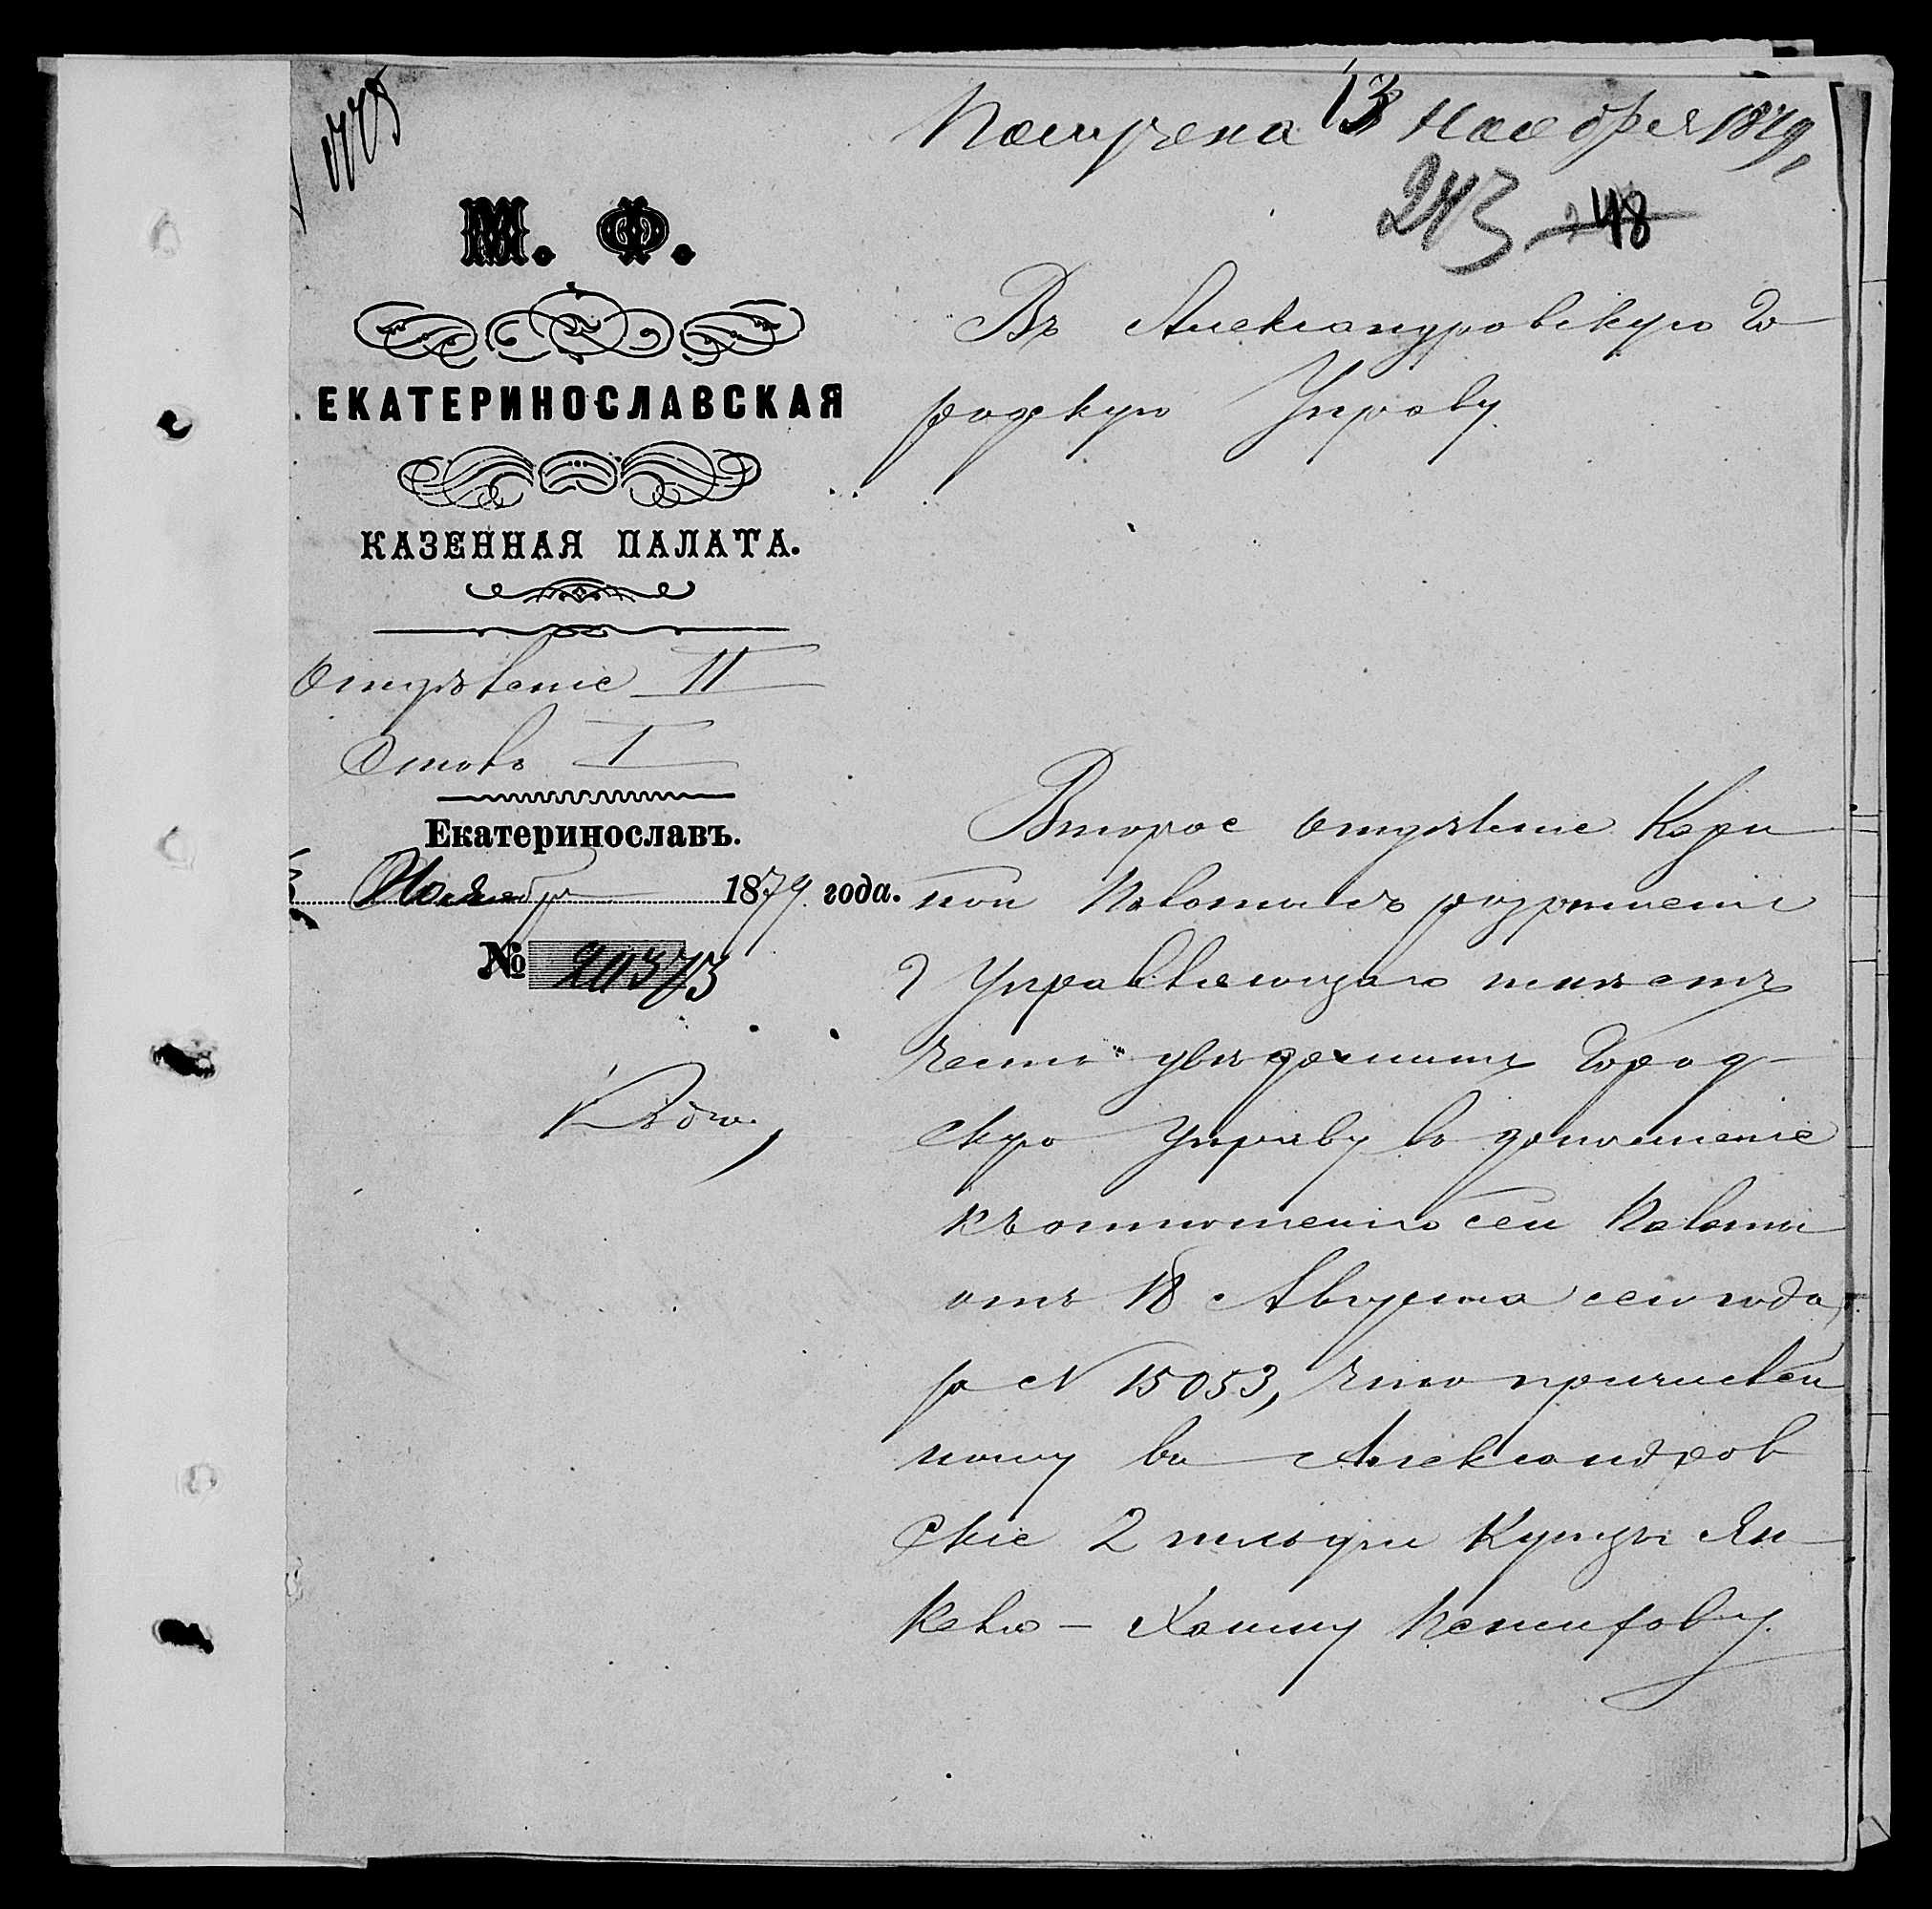 Получена 13 Ноября 1879,
243 248
М. Ф.
ЕКАТЕРИНОСЛАВСКАЯ
КАЗЕННАЯ ПАЛАТА.
Отдѣленіе II
Столъ I
Екатеринославъ.
Ноября 1879 года.
№ 20373
Въ Александровскую Го
родскую Управу.
Второе отдѣленіе Казен
ной Палаты съ разрѣшенія
Г Управляющаго имѣетъ
честь увѣдомить Город
скую Управу въ дополненіе
къ отношенію сей Палаты
отъ 18 Августа сего года,
за N 15053, что причислен
ному въ Александров
скіе 2 гильдіи Купцы Ян
келю - Хаиму